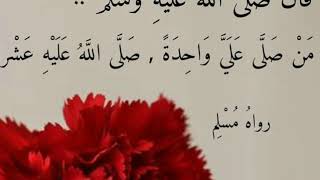 قال صَلَّى اللهُ عَلَيْهِ وَسَلَّمَ ..
مَنْ صَلَّى عَلَيَّ وَاحِدَةً , صَلَّى اللَّهُ عَلَيْهِ عَشْر
رواهُ مُسْلِم